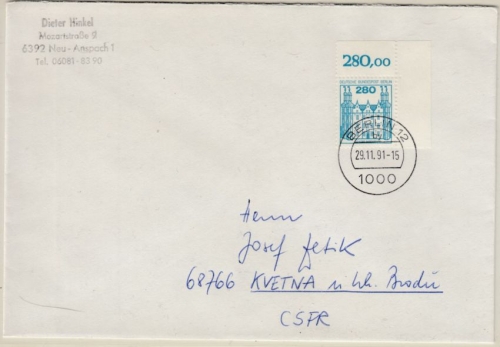 Dieter Hinkel
Mozartstraße 2
6392 Neu-Anspach 1
Tel. 06081-8390
280,00
DEUTSCHE BUNDESPOST BERLIN
280
BERLIN 12
29.11.91-16
1000
Herrn
Josef Jetik
68766 KVETNA u Uh. Brodu
CSFR